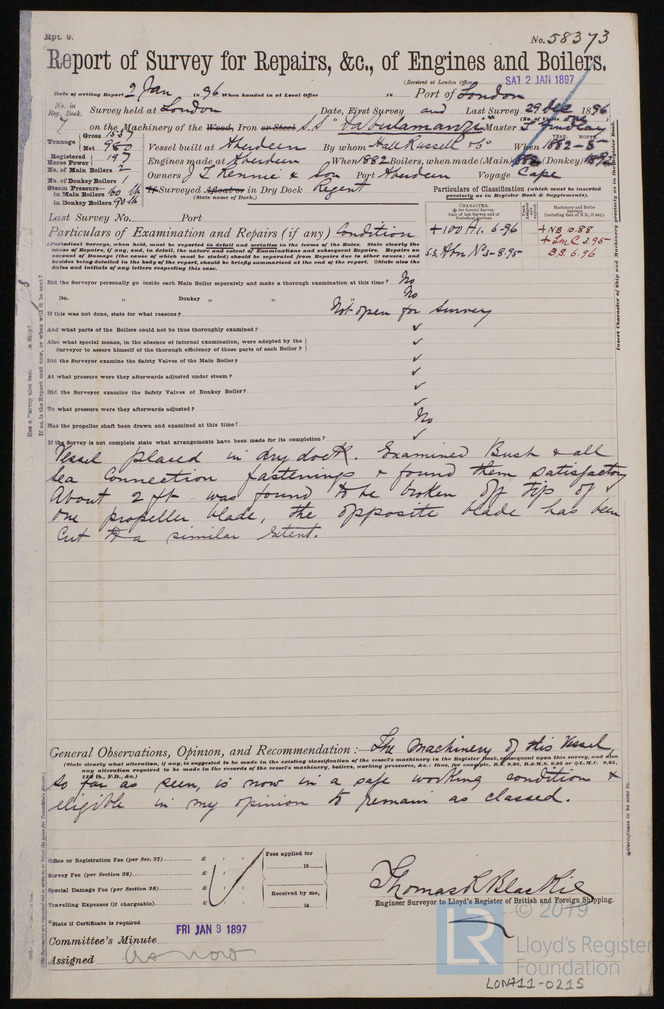 Rpt. 9.
No. 58373
Report of Survey for Repairs, &c., of Engines and Boilers.
(Received at London Office SAT 2 JAN 1897
Date of writing Report 2 Jan 1896 When handed in at Local Office 18 Port of London
No. in Reg. Book. Survey held at London Date, First Survey and Last Survey 29 Dec 1896
(No. of Visits one)
7 on the Machinery of the Wood, Iron or Steel S.S "Dabulamanzi" Master J Findlay
Tonnage Gross 1339
Net 980
Vessel built at Aberdeen By whom Hall Russell & Co When 1882-8
Registered Horse Power 197 Engines made at Aberdeen When 1882 Boilers, when made (Main) 1882 (Donkey)
No. of Main Boilers 2
No. of Donkey Boilers 1 Owners J T Rennie & Son Port Aberdeen Voyage Cape
Steam Pressure in Main Boilers 60 lb If Surveyed Afloat or in Dry Dock Regent
in Donkey Boilers 90 lb (State name of Dock.)
Particulars of Classification (which must be inserted precisely as in Register Book & Supplements).
Last Survey No. Port
Particulars of Examination and Repairs (if any) Condition
+100A1. 6-96
S.S. Abn No3-8.95
+NB 10.88
+LMC 3.95
B.S. 6.96
(Periodical Surveys, when held, must be reported in detail and seriatim in the terms of the Rules. State clearly the cause of Repairs, if any, and, in detail, the nature and extent of Examinations and subsequent Repairs. Repairs on account of Damage (the cause of which must be stated) should be separated from Repairs due to other causes; and besides being detailed in the body of the report, should be briefly summarised at the end of the report. State also the dates and initials of any letters respecting this case.
Did the Surveyor personally go inside each Main Boiler separately and make a thorough examination at this time? No
Do. " Donkey " " " No
If this was not done, state for what reasons? Not open for Survey
And what parts of the Boilers could not be thoroughly examined? ✓
Also what special means, in the absence of internal examination, were adopted by the Surveyor to assure himself of the thorough efficiency of those parts of each Boiler? ✓
Did the Surveyor examine the Safety Valves of the Main Boiler? ✓
At what pressure were they afterwards adjusted under steam? ✓
Did the Surveyor examine the Safety Valves of Donkey Boiler? ✓
To what pressure were they afterwards adjusted? ✓
Has the propeller shaft been drawn and examined at this time? No
If the Survey is not complete state what arrangements have been made for its completion? ✓
Vessel placed in dry dock. Examined Bush & all
sea connection fastenings & found them satisfactory
About 2 ft was found to be broken off tip of
one propeller blade, the opposite blade has been
cut to a similar extent.
General Observations, Opinion, and Recommendation :— The Machinery of this Vessel,
(State clearly what alteration, if any, is suggested to be made in the existing classification of the vessel's machinery in the Register Book, consequent upon this survey, and also any alteration required to be made in the records of the vessel's machinery, boilers, working pressures, &c.,
so far as seen, is now in a safe working condition &
eligible in my opinion to remain as classed.
Office or Registration Fee (per Sec. 27) £
Survey Fee (per Section 28) £
Special Damage Fee (per Section 28) £
Travelling Expenses (if chargeable) £
Fees applied for
18
Received by me,
18
Thomas R Blackie
Engineer Surveyor to Lloyd's Register of British and Foreign Shipping.
State if Certificate is required
Committee's Minute FRI JAN 9 1897
Assigned as now
© 2019
LR
Lloyd's Register
Foundation
LON711-0215